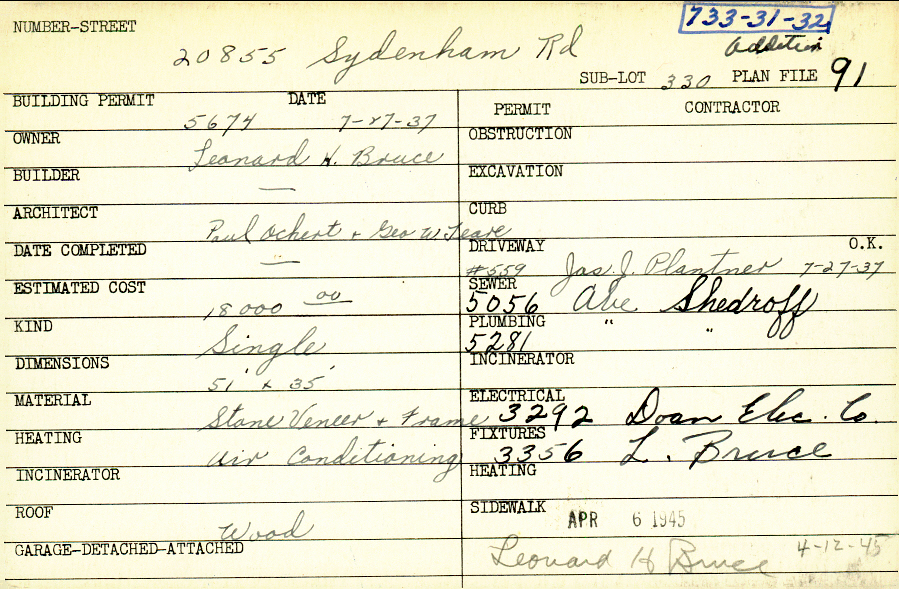 NUMBER-STREET
733-31-32
20855 Sydenham Rd
Addition
SUB-LOT 330 PLAN FILE 91
BUILDING PERMIT DATE
5674 7-27-37
OWNER
Leonard H. Bruce
BUILDER
—
ARCHITECT
Paul Ochert + Geo W. Teare
DATE COMPLETED
—
ESTIMATED COST
18000 00
KIND
Single
DIMENSIONS
51' x 35'
MATERIAL
Stone Veneer + Frame
HEATING
Air Conditioning
INCINERATOR
ROOF
Wood
GARAGE-DETACHED-ATTACHED
PERMIT CONTRACTOR
OBSTRUCTION
EXCAVATION
CURB
DRIVEWAY O.K.
#559 Jas. J. Plantner 7-27-37
SEWER
5056 Abe Shedroff
PLUMBING " "
5281
INCINERATOR
ELECTRICAL
3292 Doan Elec. Co.
FIXTURES
3356 L. Bruce
HEATING
SIDEWALK APR 6 1945
Leonard H Bruce 4-12-45